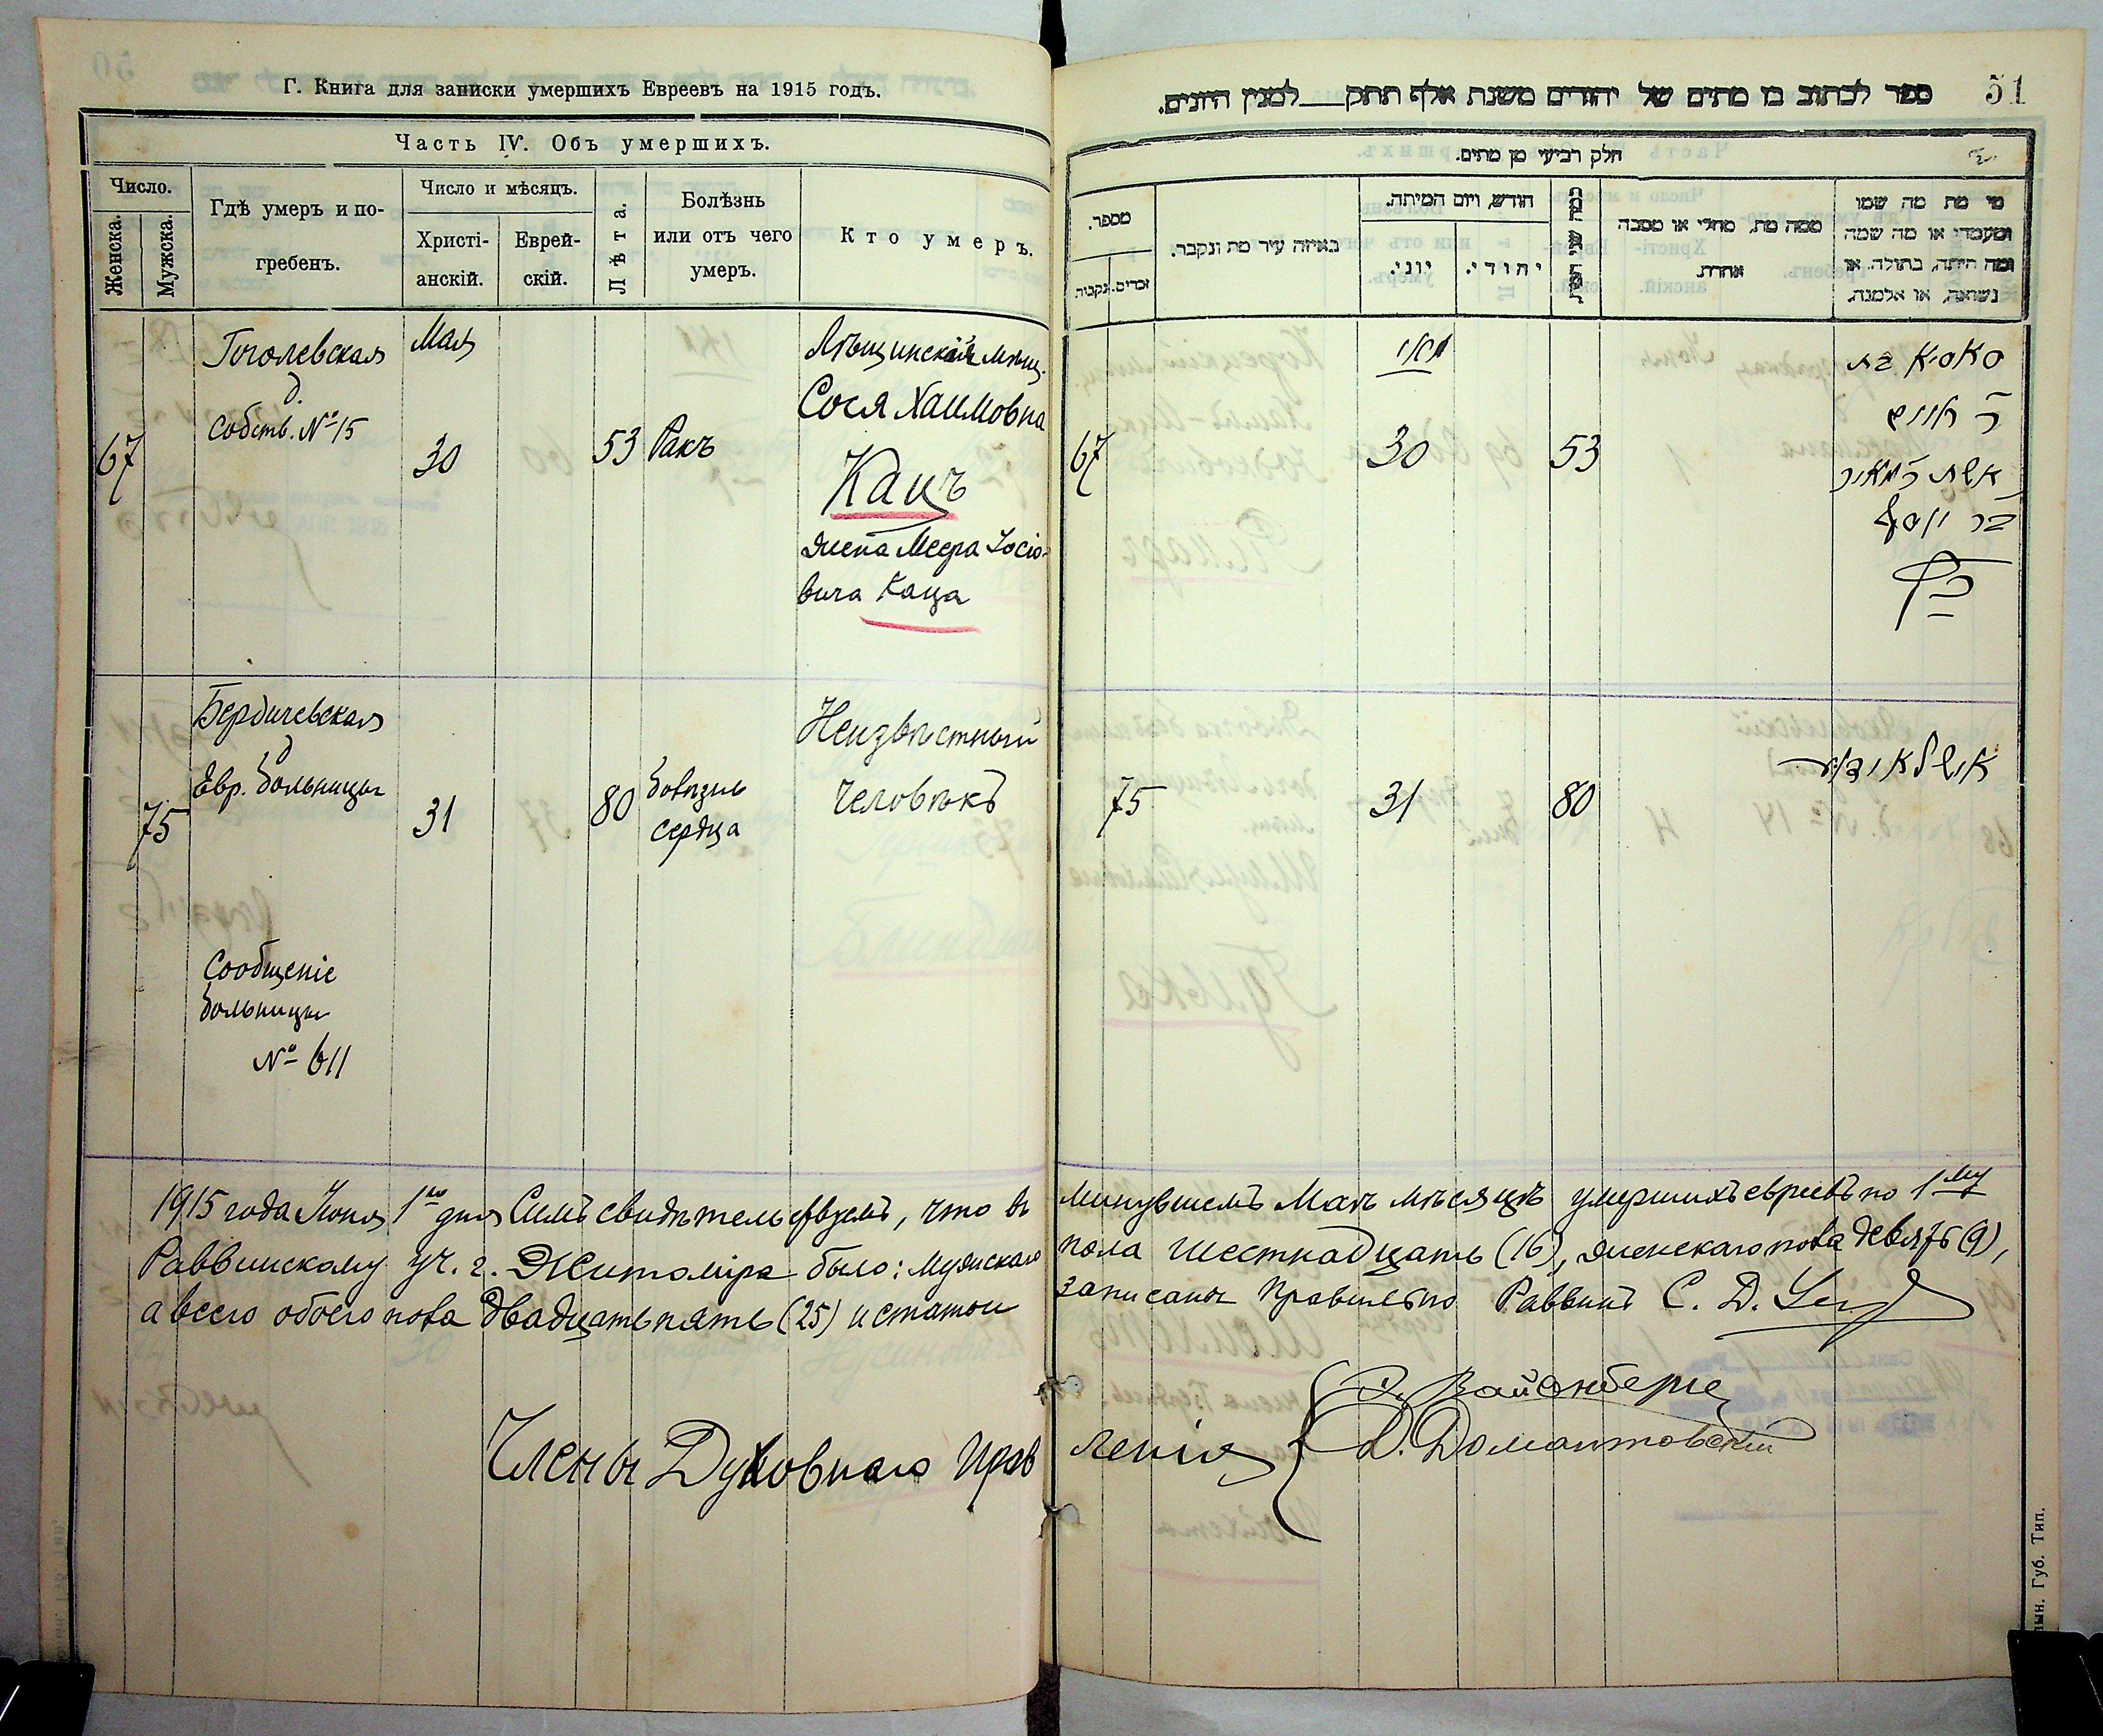 Г. Книга для записки умершихъ Евреевъ на 1915 годъ.
Часть IV. Объ умершихъ.
Число.
Женска.
Мужска.
Гдѣ умеръ и по-
гребенъ.
Число и мѣсяцъ.
Христі-
анскій.
Еврей-
скій.
Лѣта.
Болѣзнь
или отъ чего
умеръ.
Кто умеръ.
67
Гоголевская
д.
Собств. № 15
Мая
30
53
Ракъ
Сося Хаимовна
Кацъ
жена Меера Іосіо-
вича Каца
75
Бердичевская
д
Евр. больницы
31
80
болѣзнь
сердца
Неизвѣстный
человѣкъ
Сообщеніе
больницы
№ 611
1915 года Іюня 1го дня Симъ свидѣтельствуемъ, что въ
Раввинскому уч. г. Житоміра было: мужскаго
а всего обоего пола двадцать пять (25) и статьи
Члены Духовнаго Прав
51
ספר לכתוב בו מתים של יהודים משנת אלף תתק___למנין היונים.
חלק רביעי מן מתים.
מספר.
נקבות.
זכרים.
באיזה עיר מת ונקבר.
חודש, ויום המיתה.
יוני.
יהודי.
כמה שני המת
ממה מת, מחלי או מסבה
אחרת.
מי מת מה שמו
ומעמדו או מה שמה
ומה היתה, בתולה, או
נשואה, או אלמנה.
67
מאי
30
53
סאסיא בת
ר' חיים
אשת ר' מאיר
בר יוסף
כץ
75
31
80
минувшемъ Маѣ мѣсяцѣ умершихъ евреевъ по 1му
пола шестнадцать (16), женскаго пола девять (9),
записаны правильно Раввинъ С. Д.
Вайсенберге
Д. Домантовскій
ленія
ын. Губ. Тип.